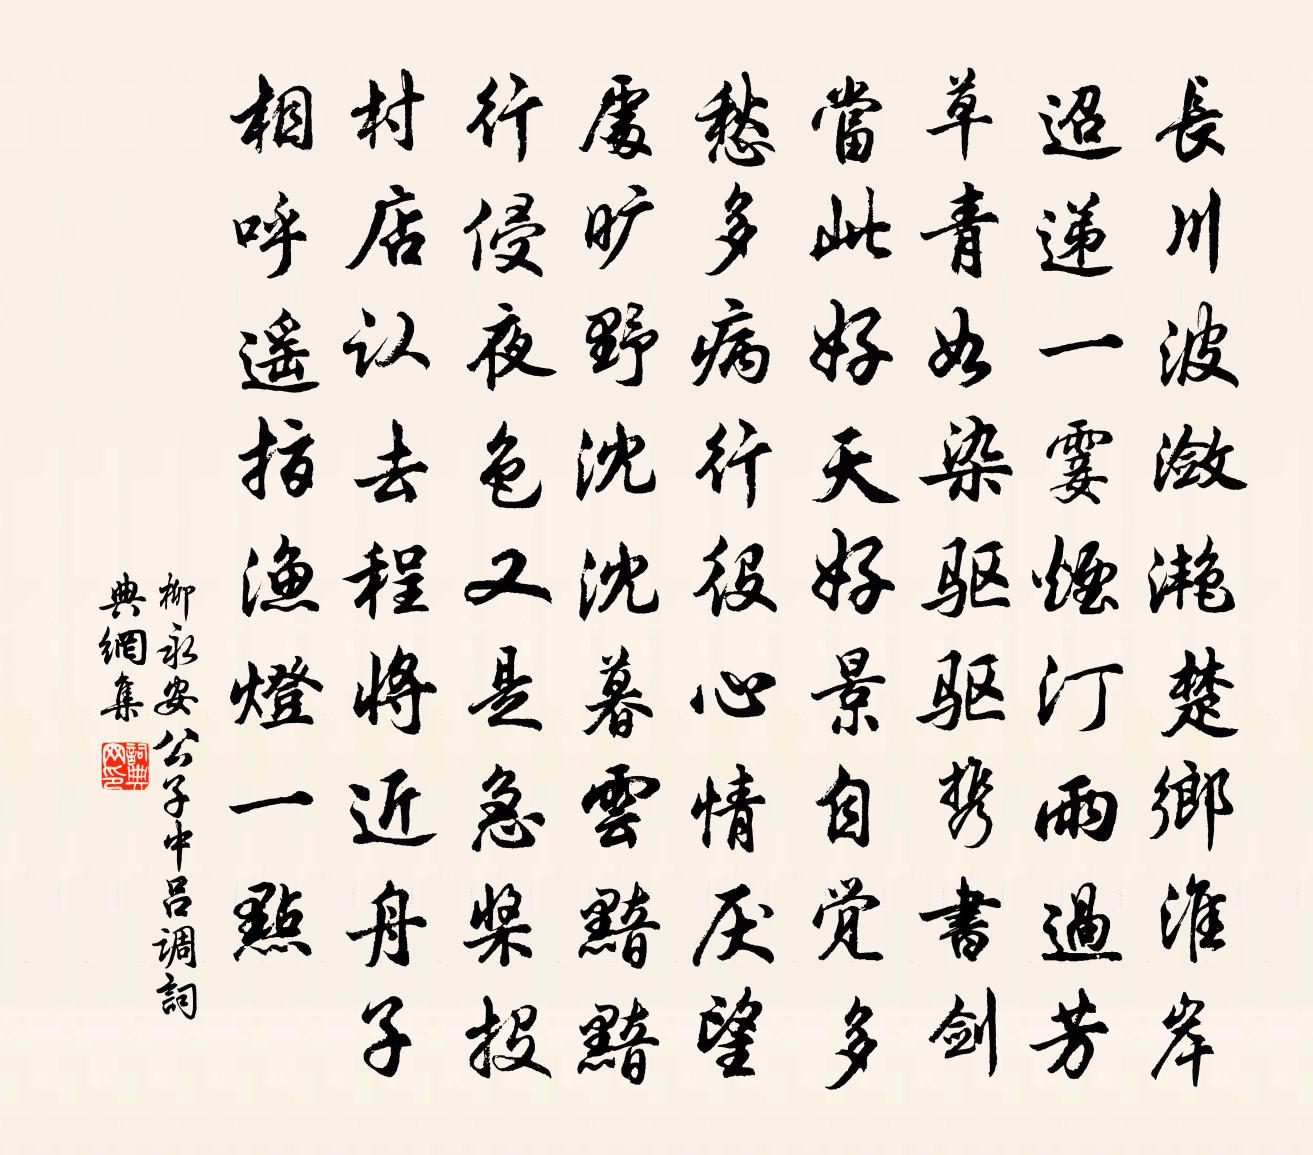 長川波潋滟楚鄉淮岸
迢递一霎煙汀雨過芳
草青如染驱驱携書剑
當此好天好景自觉多
愁多病行役心情厌望
處旷野沈沈暮雲黯黯
行侵夜色又是急桨投
村店认去程将近舟子
相呼遥指漁燈一點
柳永安公子中吕调詞
典網集
詞典
网印